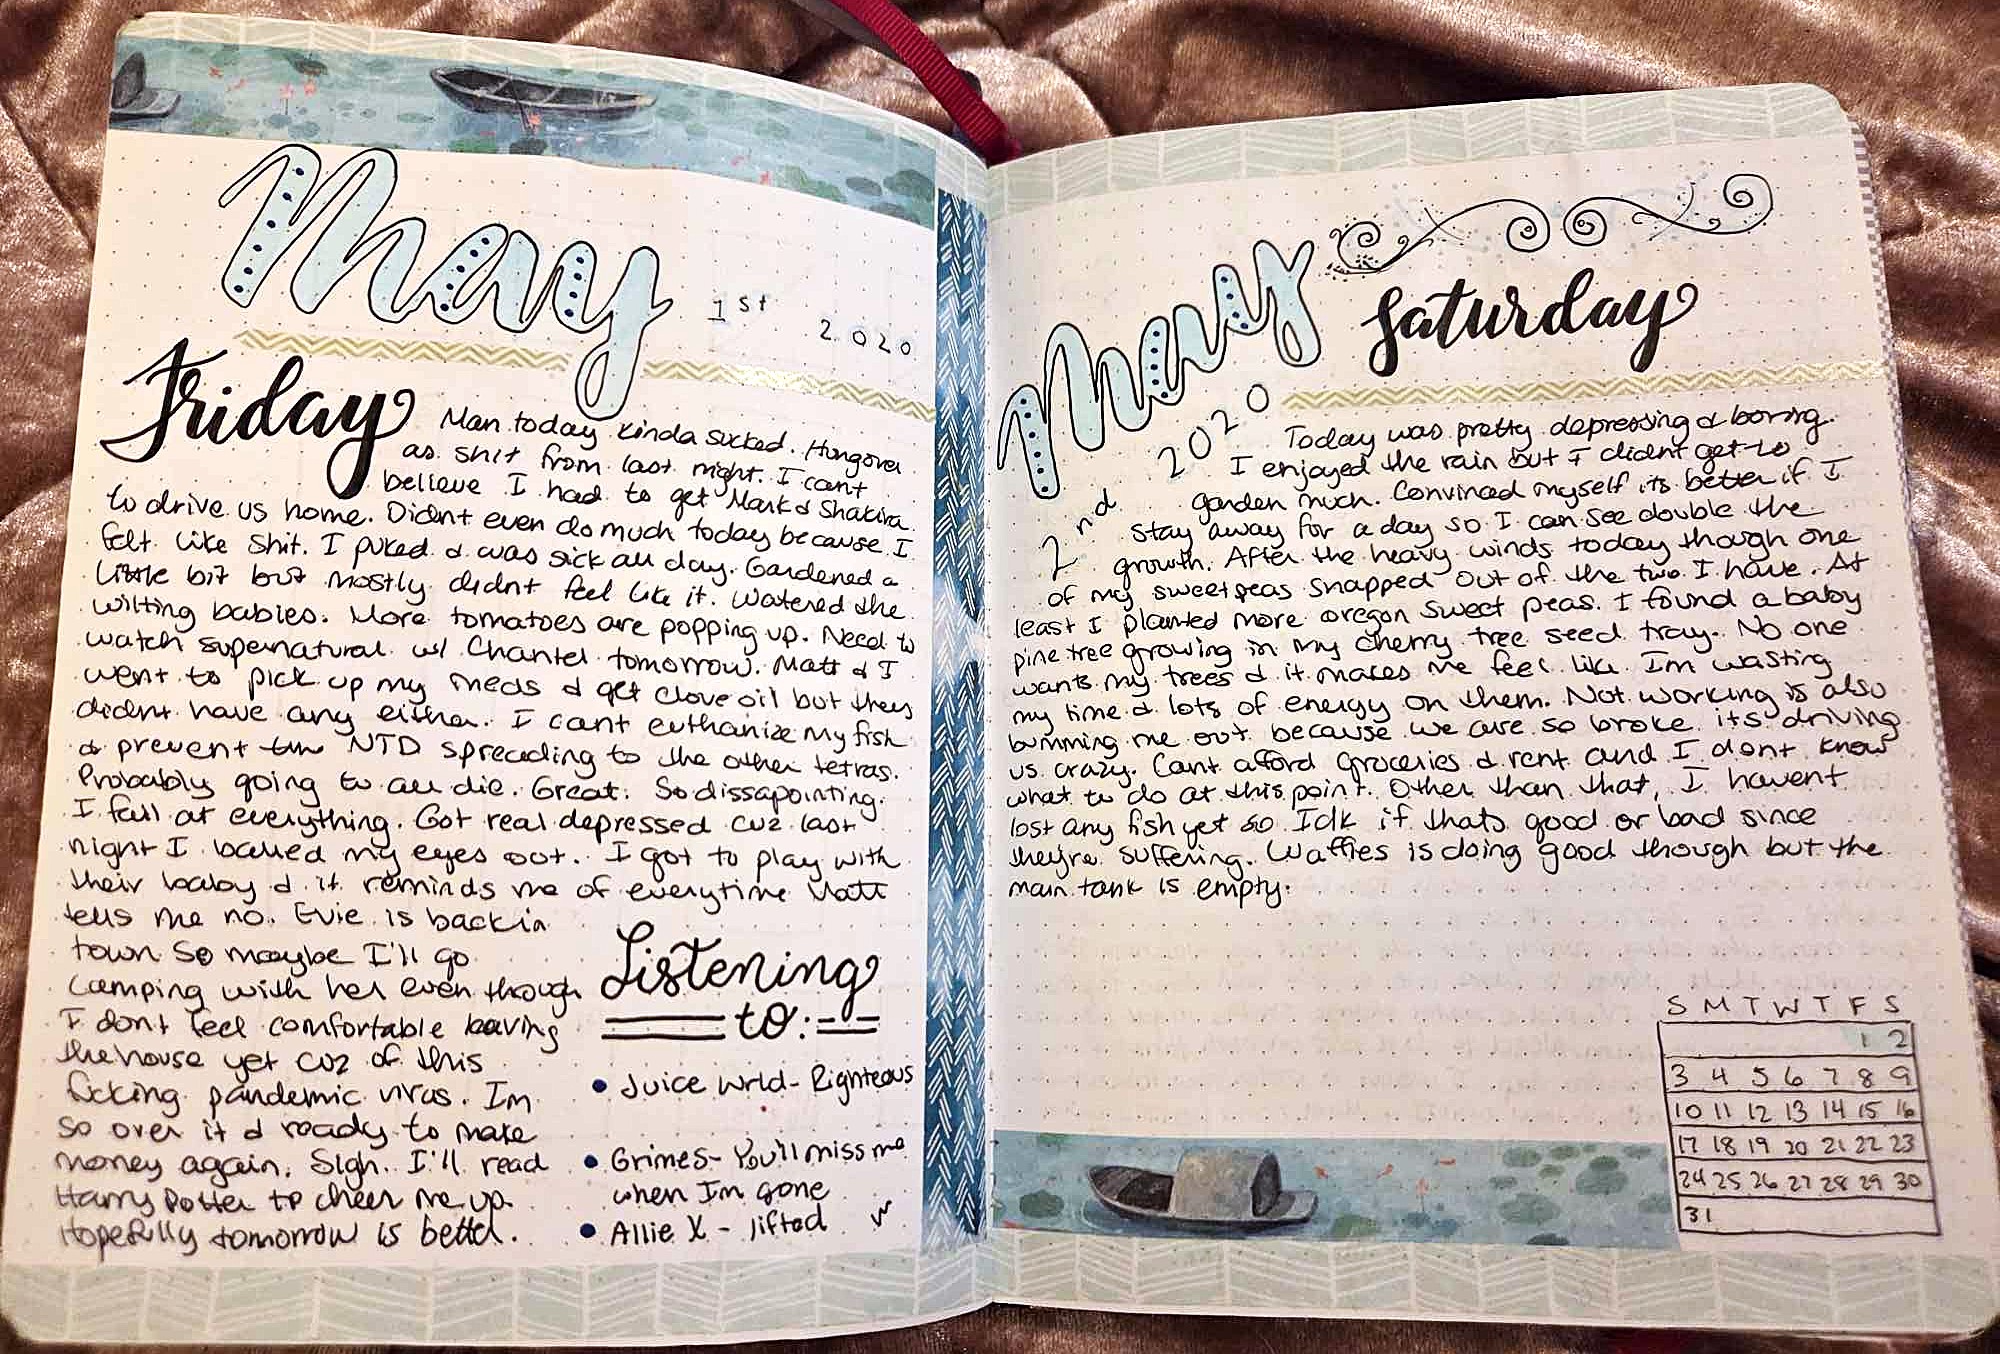 May 1st 2020
Friday
Man today kinda sucked. Hungover
as shit from last night. I cant
believe I had to get Mark & Shakira
to drive us home. Didnt even do much today because I
felt like shit. I puked & was sick all day. Gardened a
little bit but mostly didnt feel like it. Watered the
wilting babies. More tomatoes are popping up. Need to
watch supernatural w/ Chantel tomorrow. Matt & I
went to pick up my meds & get clove oil but they
didnt have any either. I cant euthanize my fish
& prevent the NTD spreading to the other tetras.
Probably going to all die. Great. So dissapointing.
I fail at everything. Got real depressed cuz last
night I balled my eyes out. I got to play with
their baby & it reminds me of everytime Matt
tells me no. Evie is back in
town so maybe I'll go
camping with her even though
I dont feel comfortable leaving
the house yet cuz of this
fucking pandemic virus. Im
so over it & ready to make
money again. Sigh. I'll read
Harry Potter to cheer me up.
Hopefully tomorrow is better.
Listening
to:
• Juice Wrld - Righteous
• Grimes - You'll miss me
when Im gone
• Allie X - lifted
May 2nd 2020
Saturday
Today was pretty depressing & boring.
I enjoyed the rain but I didnt get to
garden much. Convinced myself its better if I
stay away for a day so I can see double the
growth. After the heavy winds today though one
of my sweetpeas snapped out of the two I have. At
least I planted more oregon sweet peas. I found a baby
pine tree growing in my cherry tree seed tray. No one
wants my trees & it makes me feel like Im wasting
my time & lots of energy on them. Not working is also
bumming me out because we are so broke its driving
us crazy. Cant afford groceries & rent and I dont know
what to do at this point. Other than that, I havent
lost any fish yet so Idk if thats good or bad since
they're suffering. Waffles is doing good though but the
main tank is empty.
S M T W T F S
1 2
3 4 5 6 7 8 9
10 11 12 13 14 15 16
17 18 19 20 21 22 23
24 25 26 27 28 29 30
31